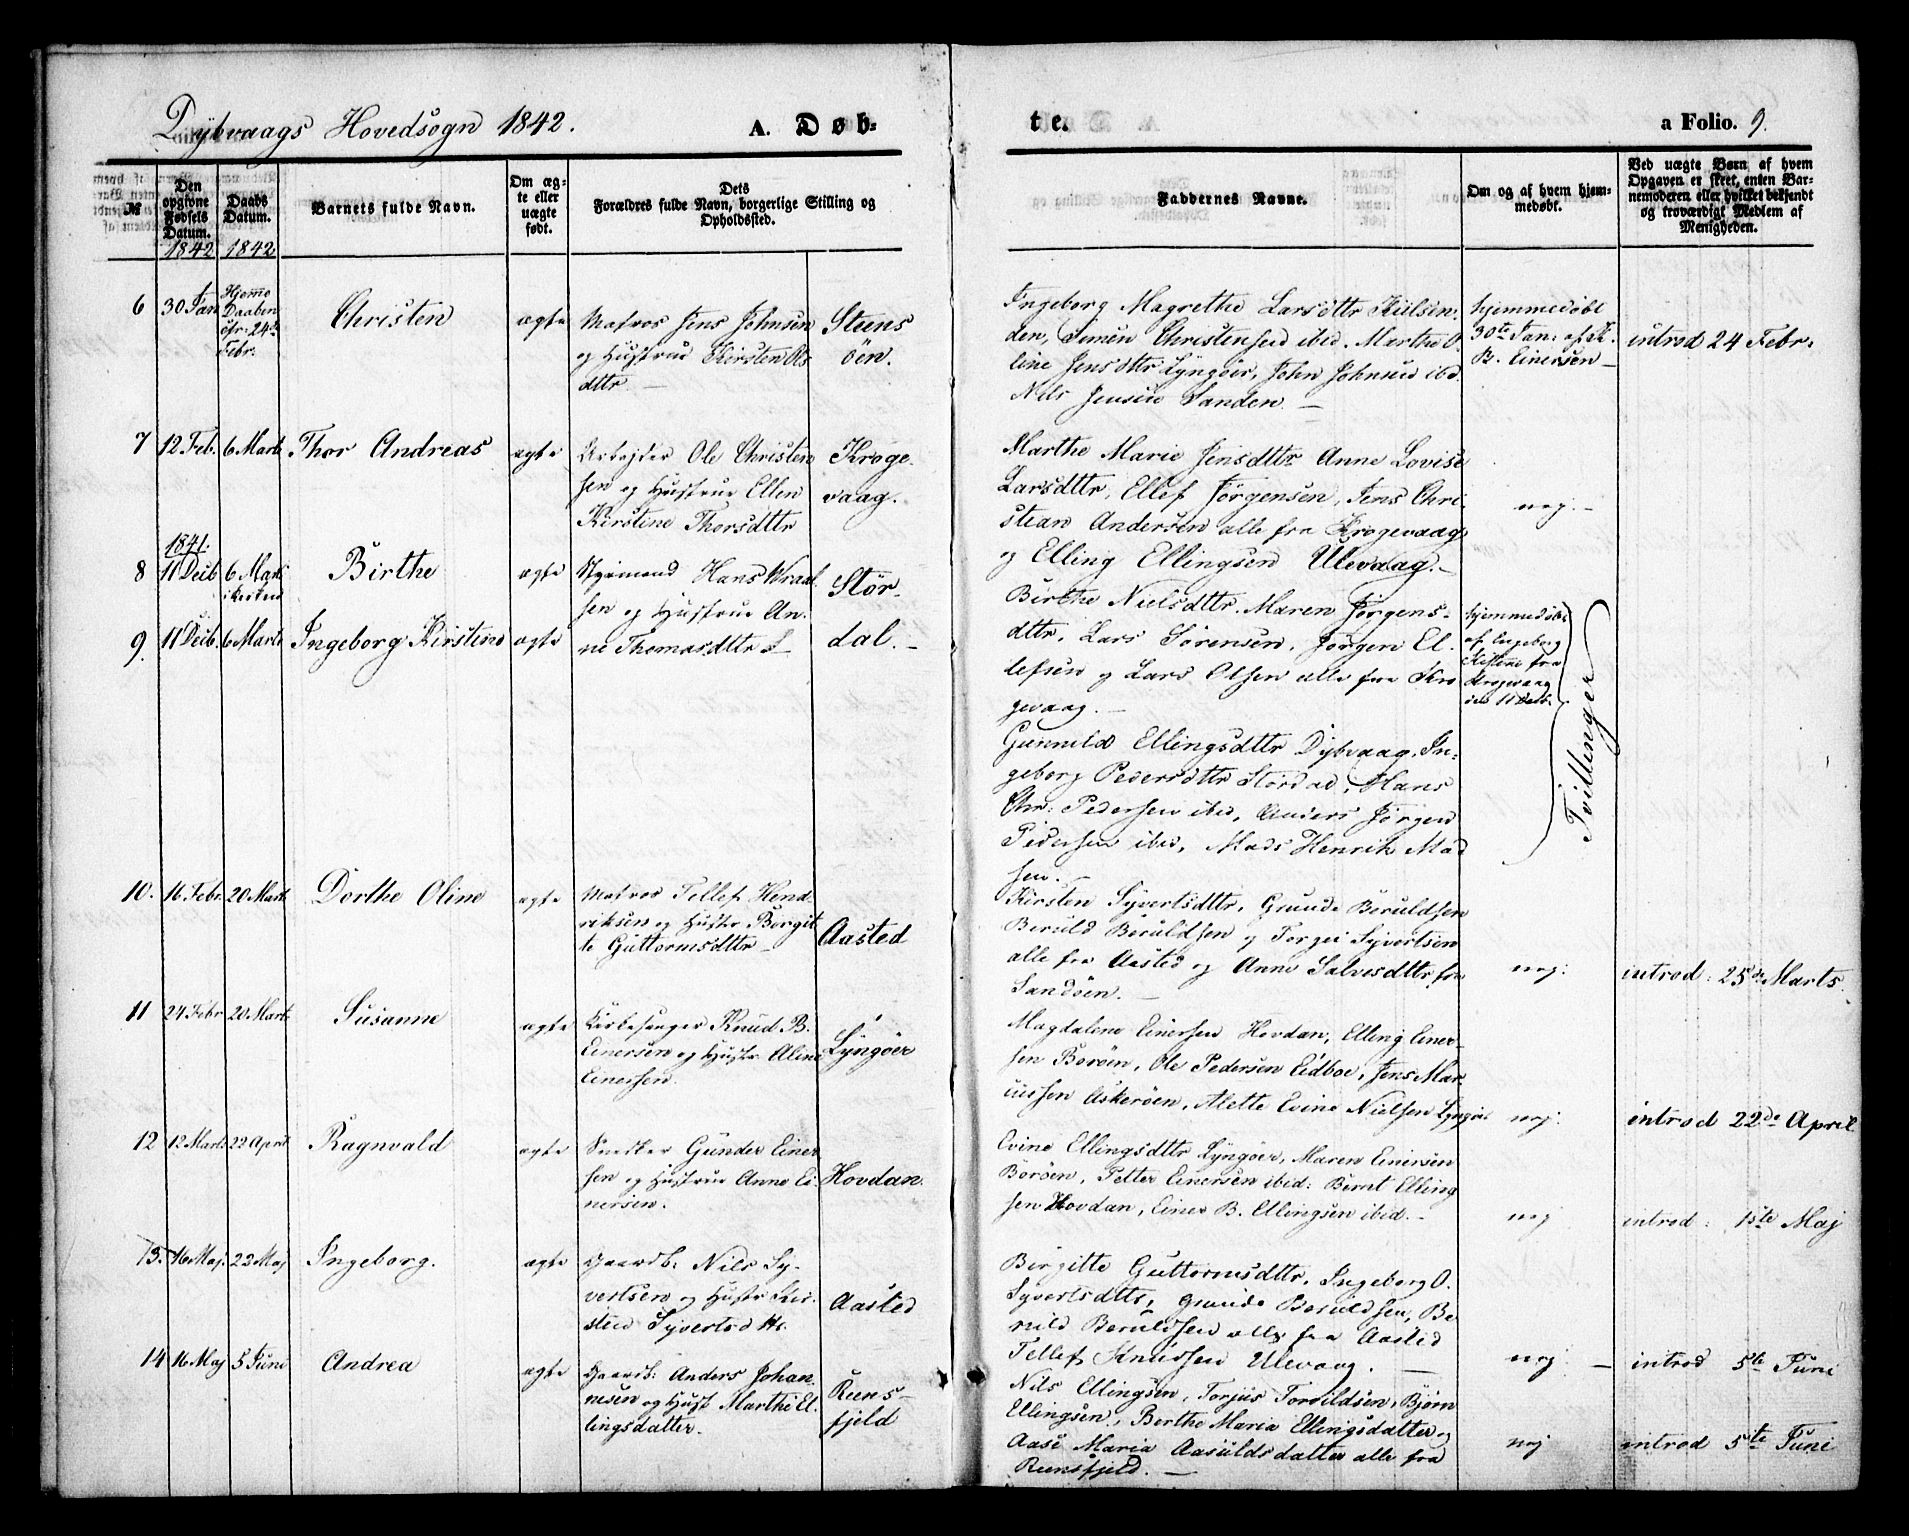 Dybvaags Hovedsogn 1842.
A. Døb-
te.
a Folio. 9.
№
Den opgivne Fødsels Datum.
1842
Daabs Datum.
1842
Barnets fulde Navn.
Om ægte eller uægte født.
Dets
Forældres fulde Navn, borgerlige Stilling og Opholdssted.
Faddernes Navne.
Om og af hvem hjemmedøbt.
Ved uægte Barn af hvem
Opgaven er skeet, enten Bar-
nemoderen eller hvilket bekjendt
og troværdigt Medlem af
Menigheden.
6
30 Jan
Hjemme
Daaben
24de
Febr.
Christen
ægte
Matros Jens Johnsen
og Hustrue Kirsten Ols
dttr. —
Steens
öen.
Ingeborg Magrethe Larsdttr
den, Simen Christensen ibid. Marthe O
line Jensdttr Lyngöer, John Johnsen ibd.
Nils Jensen Sanden. —
hjemmedöbt
30te Jan: af K.
B. Einersen —
introd 24 Febr.
7
12 Feb.
6 Marts
Thor Andreas
ægte
Arbejder Ole Christen
sen og Hustrue Ellen
Kirstine Thorsdttr
Kroge
vaag.
Marthe Marie Jensdttr Anne Lovise
Larsdttr, Ellef Jörgensen, Jens Chri
stian Andersen alle fra Krogevaag
og Elling Ellingsen Ulevaag. —
nej. —
1841.
8
11 Decb
6 Marts
i Kirken
Birthe
ægte
Styrmand Hans
sen og Hustrue An-
ne Thomasdttr
Stör-
dal. —
Birthe Nielsdttr. Maren Jörgens-
dttr, Lars Sörensen, Jörgen El-
lefsen og Lars Olsen alle fra Kro
gevaag. —
9.
11 Decb.
6 Marts
Ingeborg Kirstine
ægte
hjemmedöbt
af Ingeborg
Kistine fra
Krogevaag
den 11 Decb.
Tvillinger
Gunnild Ellingsdttr Dybvaag, In-
geborg Pedersdttr Stördal, Hans
Chr: Pedersen ibid, Anders Jörgen
Pedersen ibid, Mads Henrik Mad
sen. —
10.
16 Febr.
20 Mart.
Dorthe Oline
ægte
Matros Tellef Hend
riksen og Hustr Borgit
te Guttormsdttr —
Aasted
Kirsten Syvertsdttr, Grunde Beruldsen
Beruld Beruldsen og Torger Syvertsen
alle fra Aasted og Anne Salvesdttr fra
Sandöen. —
nej:
introd: 25de Marts.
11
24 Febr
20 Mart.
Susanne
ægte
Kirkesanger Knud B.
Einersen og Hustr Aline
Einersen.
Lyngöer
Magdalene Einersen Hovdan, Elling Einer-
sen Boröen, Ole Pedersen Eidboe, Jens Mar-
cussen Askeröen, Alette Evine Nielsen Lyngör
nej:
introd 22de April
12
12 Marts
22 April
Ragnvald
ægte
Snedker Gunder Einer
sen og Hustrue Anne Ei-
nersen.
Hovdan.
Evine Ellingsdttr Lyngöer, Maren Einersen
Boröen, Petter Einersen ibid: Bernt Elling
sen Hovdan, Einer B. Ellingsen ibid. —
nej
introd: 1ste Maj
13.
16 Maj.
22 Maj
Ingeborg.
ægte
Gaardb: Nils Sy-
vertsen og Hustr Kir-
sten Syvertsdttr.
Aasted
Birgitte Guttormsdttr, Ingeborg O.
Syvertsdttr, Grunde Beruldsen, Be
ruld Beruldsen alle fra Aasted
Tellef Knudsen Ulevaag. —
nej: —
introd 5te Juni
14
16 Maj
5 Juni
Andrea
ægte
Gaardb: Anders Johan
nesen og Hust Marthe El-
lingsdatter.
Reens-
fjeld
Nils Ellingsen, Torjus Torvildsen, Björn
Ellingsen, Berthe Maria Ellingsdatter og
Aase Maria Aasuldsdatter alle fra
Reensfjeld. —
nej
introd 5te Juni